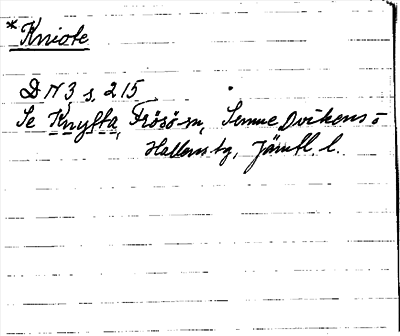 *Kniote
DN3 s. 215
Se Knytta, Frösö sn, Sunne Ovikens o
Hallens tg, Jämtl. l.